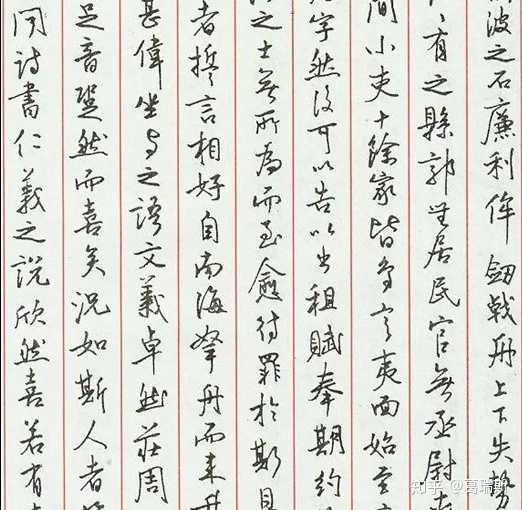 波之石廉利侔劒戟舟上下失勢
有之縣郭無居民官無丞尉
間小吏十餘家皆鳥言夷面始至
字然後可以告以出租賦奉期約
之士無所為而至愈待罪於斯且
者誓言相好自南海挐舟而来升
甚偉坐与之語文義卓然莊周
足音跫然而喜矣況如斯人者
聞詩書仁義之說欣然喜若有
知乎 @葛瑞斯